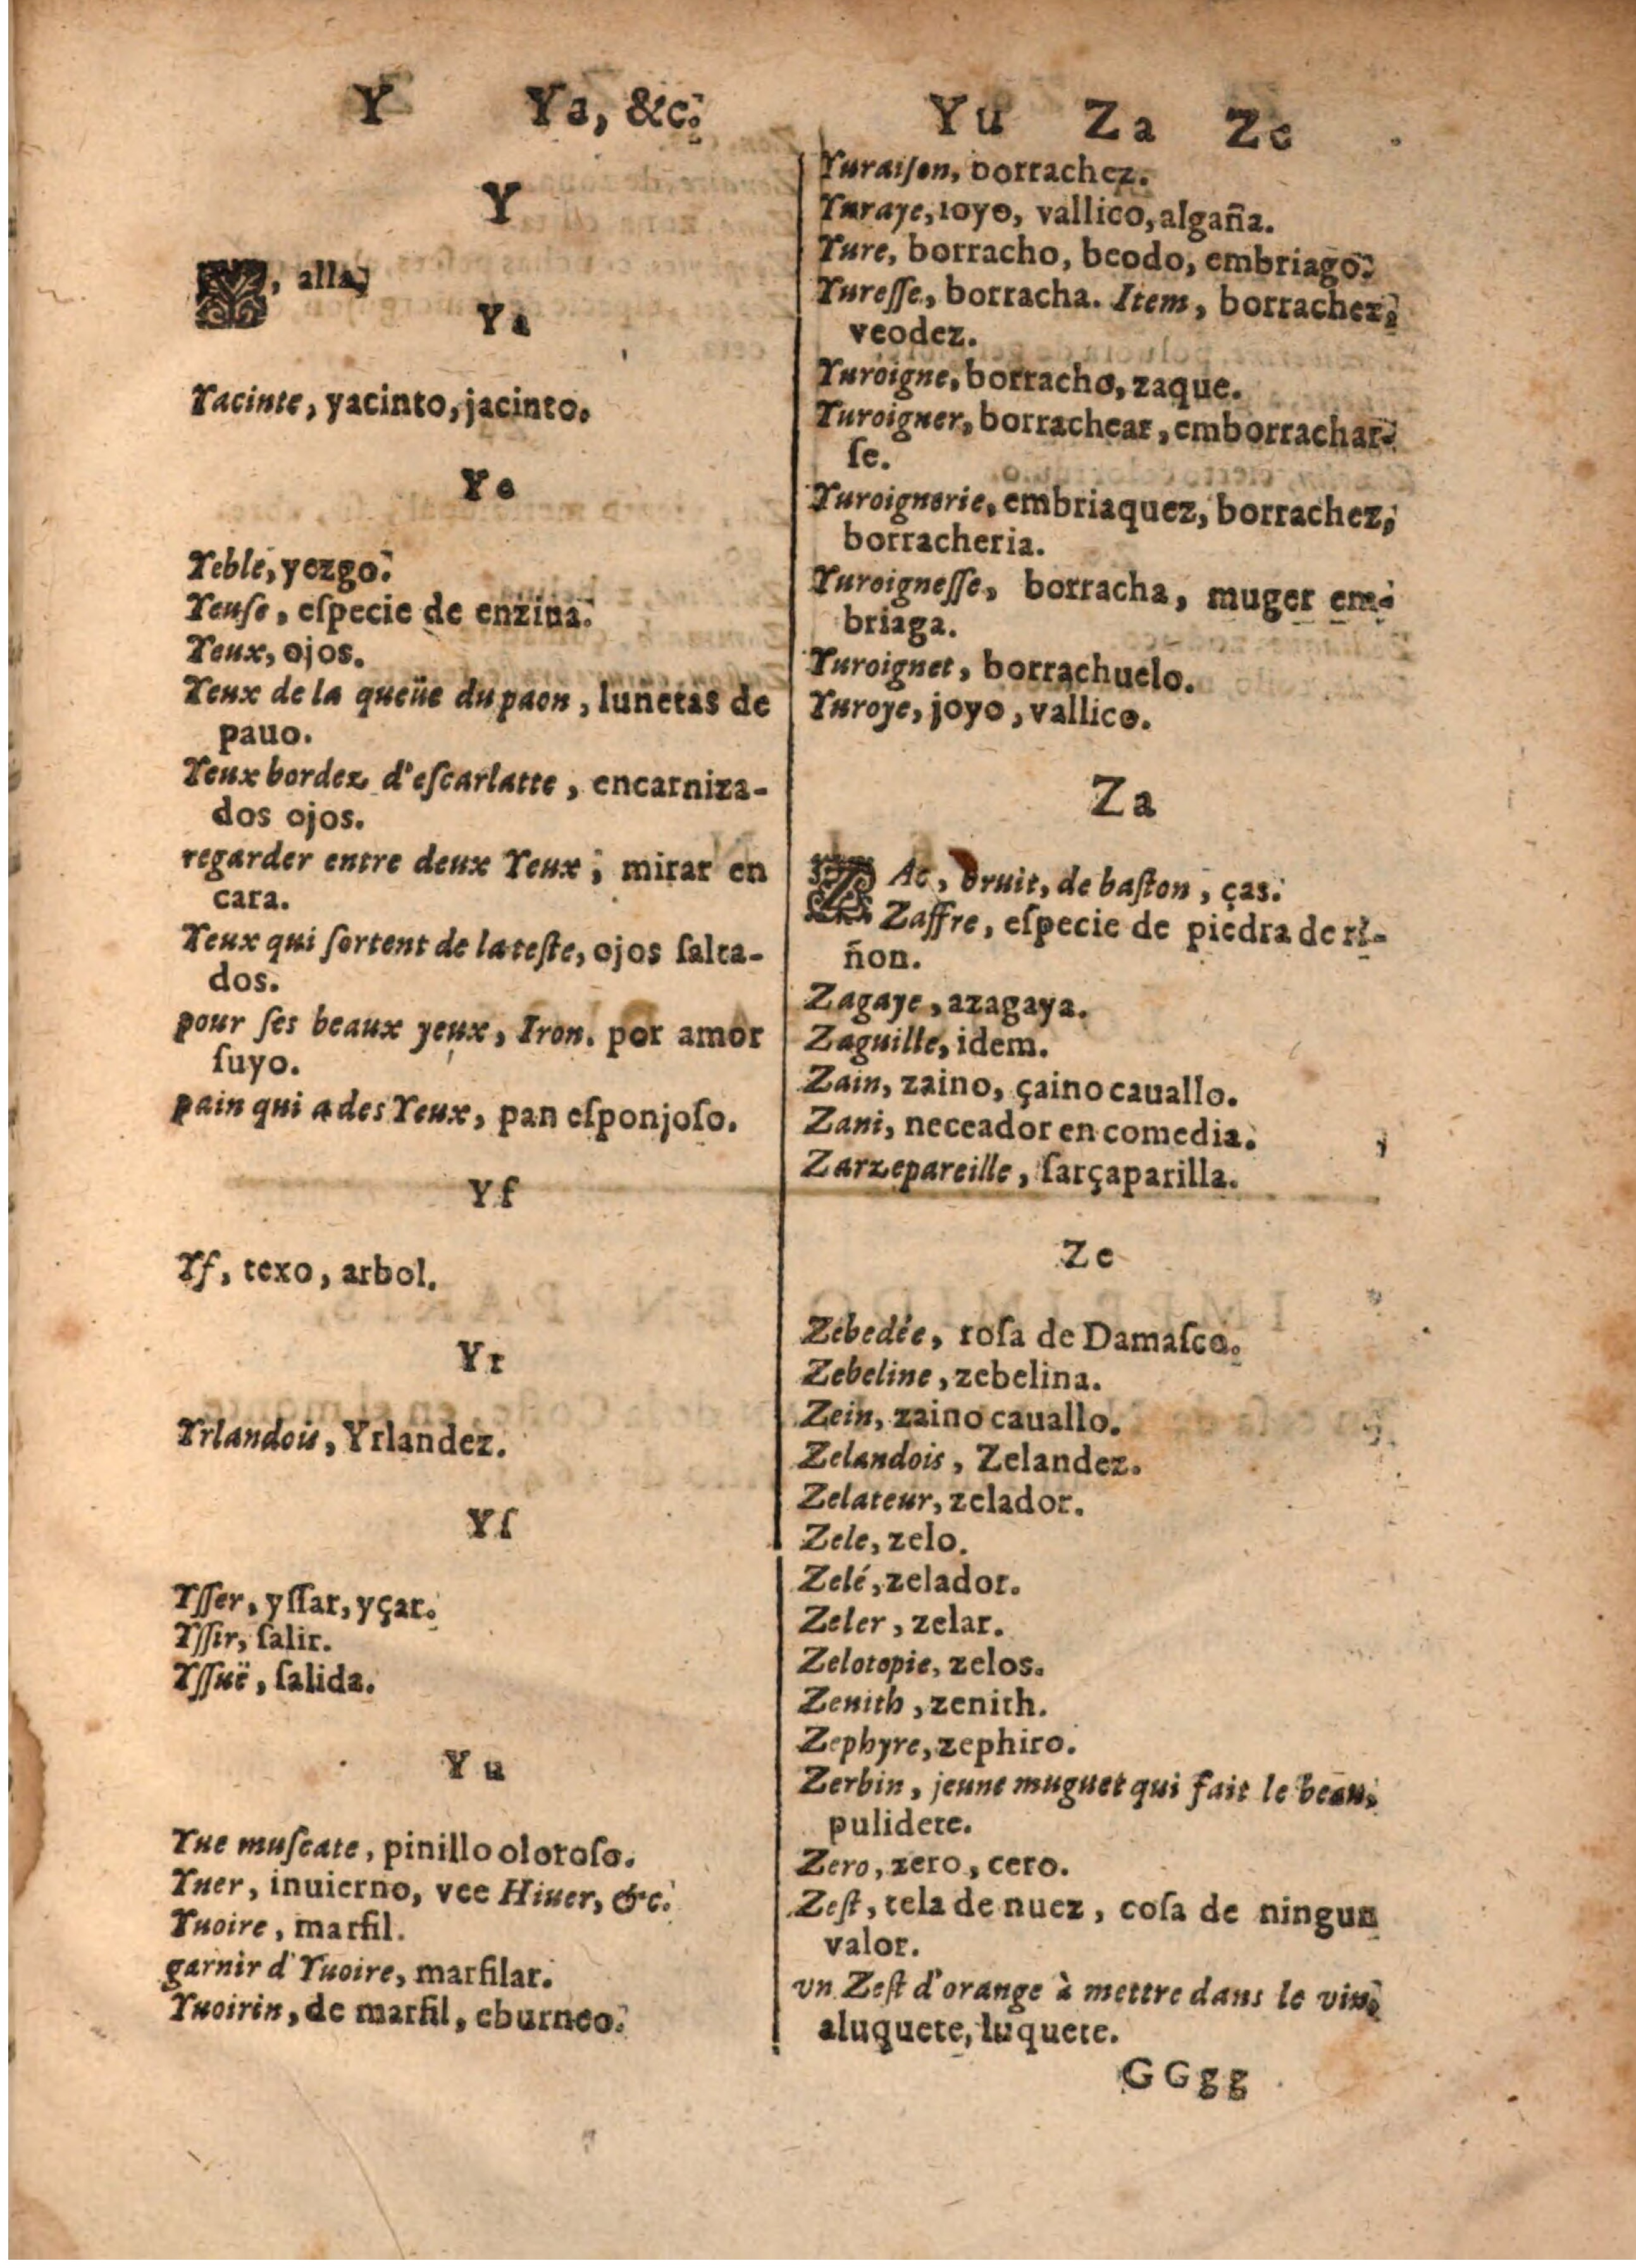 Y Ya, &c.
Y
Y, alla,
Ya
Yacinte, yacinto, jacinto.
Ye
Yeble, yezgo.
Yeuse, eſpecie de enzina.
Yeux, ojos.
Yeux de la queüe du paon, luñetas de
pauo.
Yeux bordez d'eſcarlatte, encarniza-
dos ojos.
regarder entre deux Yeux, mirar en
cara.
Yeux qui ſortent de la teſte, ojos ſalta-
dos.
pour ſes beaux yeux, Iron. por amor
ſuyo.
pain qui a des Yeux, pan eſponjoſo.
Yf
Yf, texo, arbol.
Yr
Yrlandois, Yrlandez.
Yſ
Yſſer, yſſar, yçar.
Yſſir, ſalir.
Yſſuë, ſalida.
Yu
Yue muſcate, pinillo oloroſo.
Yuer, inuierno, vee Hiuer, &c.
Yuoire, marfil.
garnir d'Yuoire, marfilar.
Yuoirin, de marfil, eburneo.
Yu Za Ze
Yuraiſon, borrachez.
Yuraye, ioyo, vallico, algaña.
Yure, borracho, beodo, embriago.
Yureſſe, borracha. Item, borrachez,
veodez.
Yuroigne, borracho, zaque.
Yuroigner, borrachear, emborrachar-
ſe.
Yuroignerie, embriaquez, borrachez,
borracheria.
Yuroigneſſe, borracha, muger em-
briaga.
Yuroignet, borrachuelo.
Yuroye, joyo, vallico.
Za
ZAc, bruit, de baſton, ças.
Zaffre, eſpecie de piedra de ri-
ñon.
Zagaye, azagaya.
Zaguille, idem.
Zain, zaino, çaino cauallo.
Zani, neceador en comedia.
Zarzepareille, ſarçaparilla.
Ze
Zebedée, roſa de Damaſco.
Zebeline, zebelina.
Zein, zaino cauallo.
Zelandois, Zelandez.
Zelateur, zelador.
Zele, zelo.
Zelé, zelador.
Zeler, zelar.
Zelotopie, zelos.
Zenith, zenith.
Zephyre, zephiro.
Zerbin, jeune muguet qui fait le beau,
pulidete.
Zero, zero, cero.
Zeſt, tela de nuez, coſa de ningun
valor.
vn Zeſt d'orange à mettre dans le vin,
aluquete, luquete.
GGgg